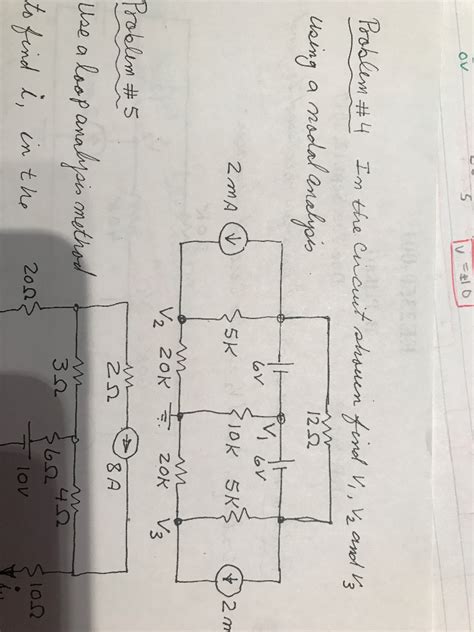 0V
5
V = ±10
Problem #4 In the circuit shown find V₁, V₂ and V₃
using a nodal analysis
12Ω
6V V₁ 6V
2mA 5K 10K 5K 2m
V₂ 20K 20K V₃
Problem #5
Use a loop analysis method
to find i, in the
2Ω 8A
3Ω 4Ω
20Ω 6Ω 10V 10Ω
i₁